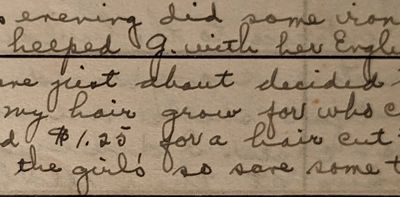 evening did some iron
helped G. with her Engl
just about decided
my hair grow for who c
d $1.25 for a hair cut
the girls' so save some t